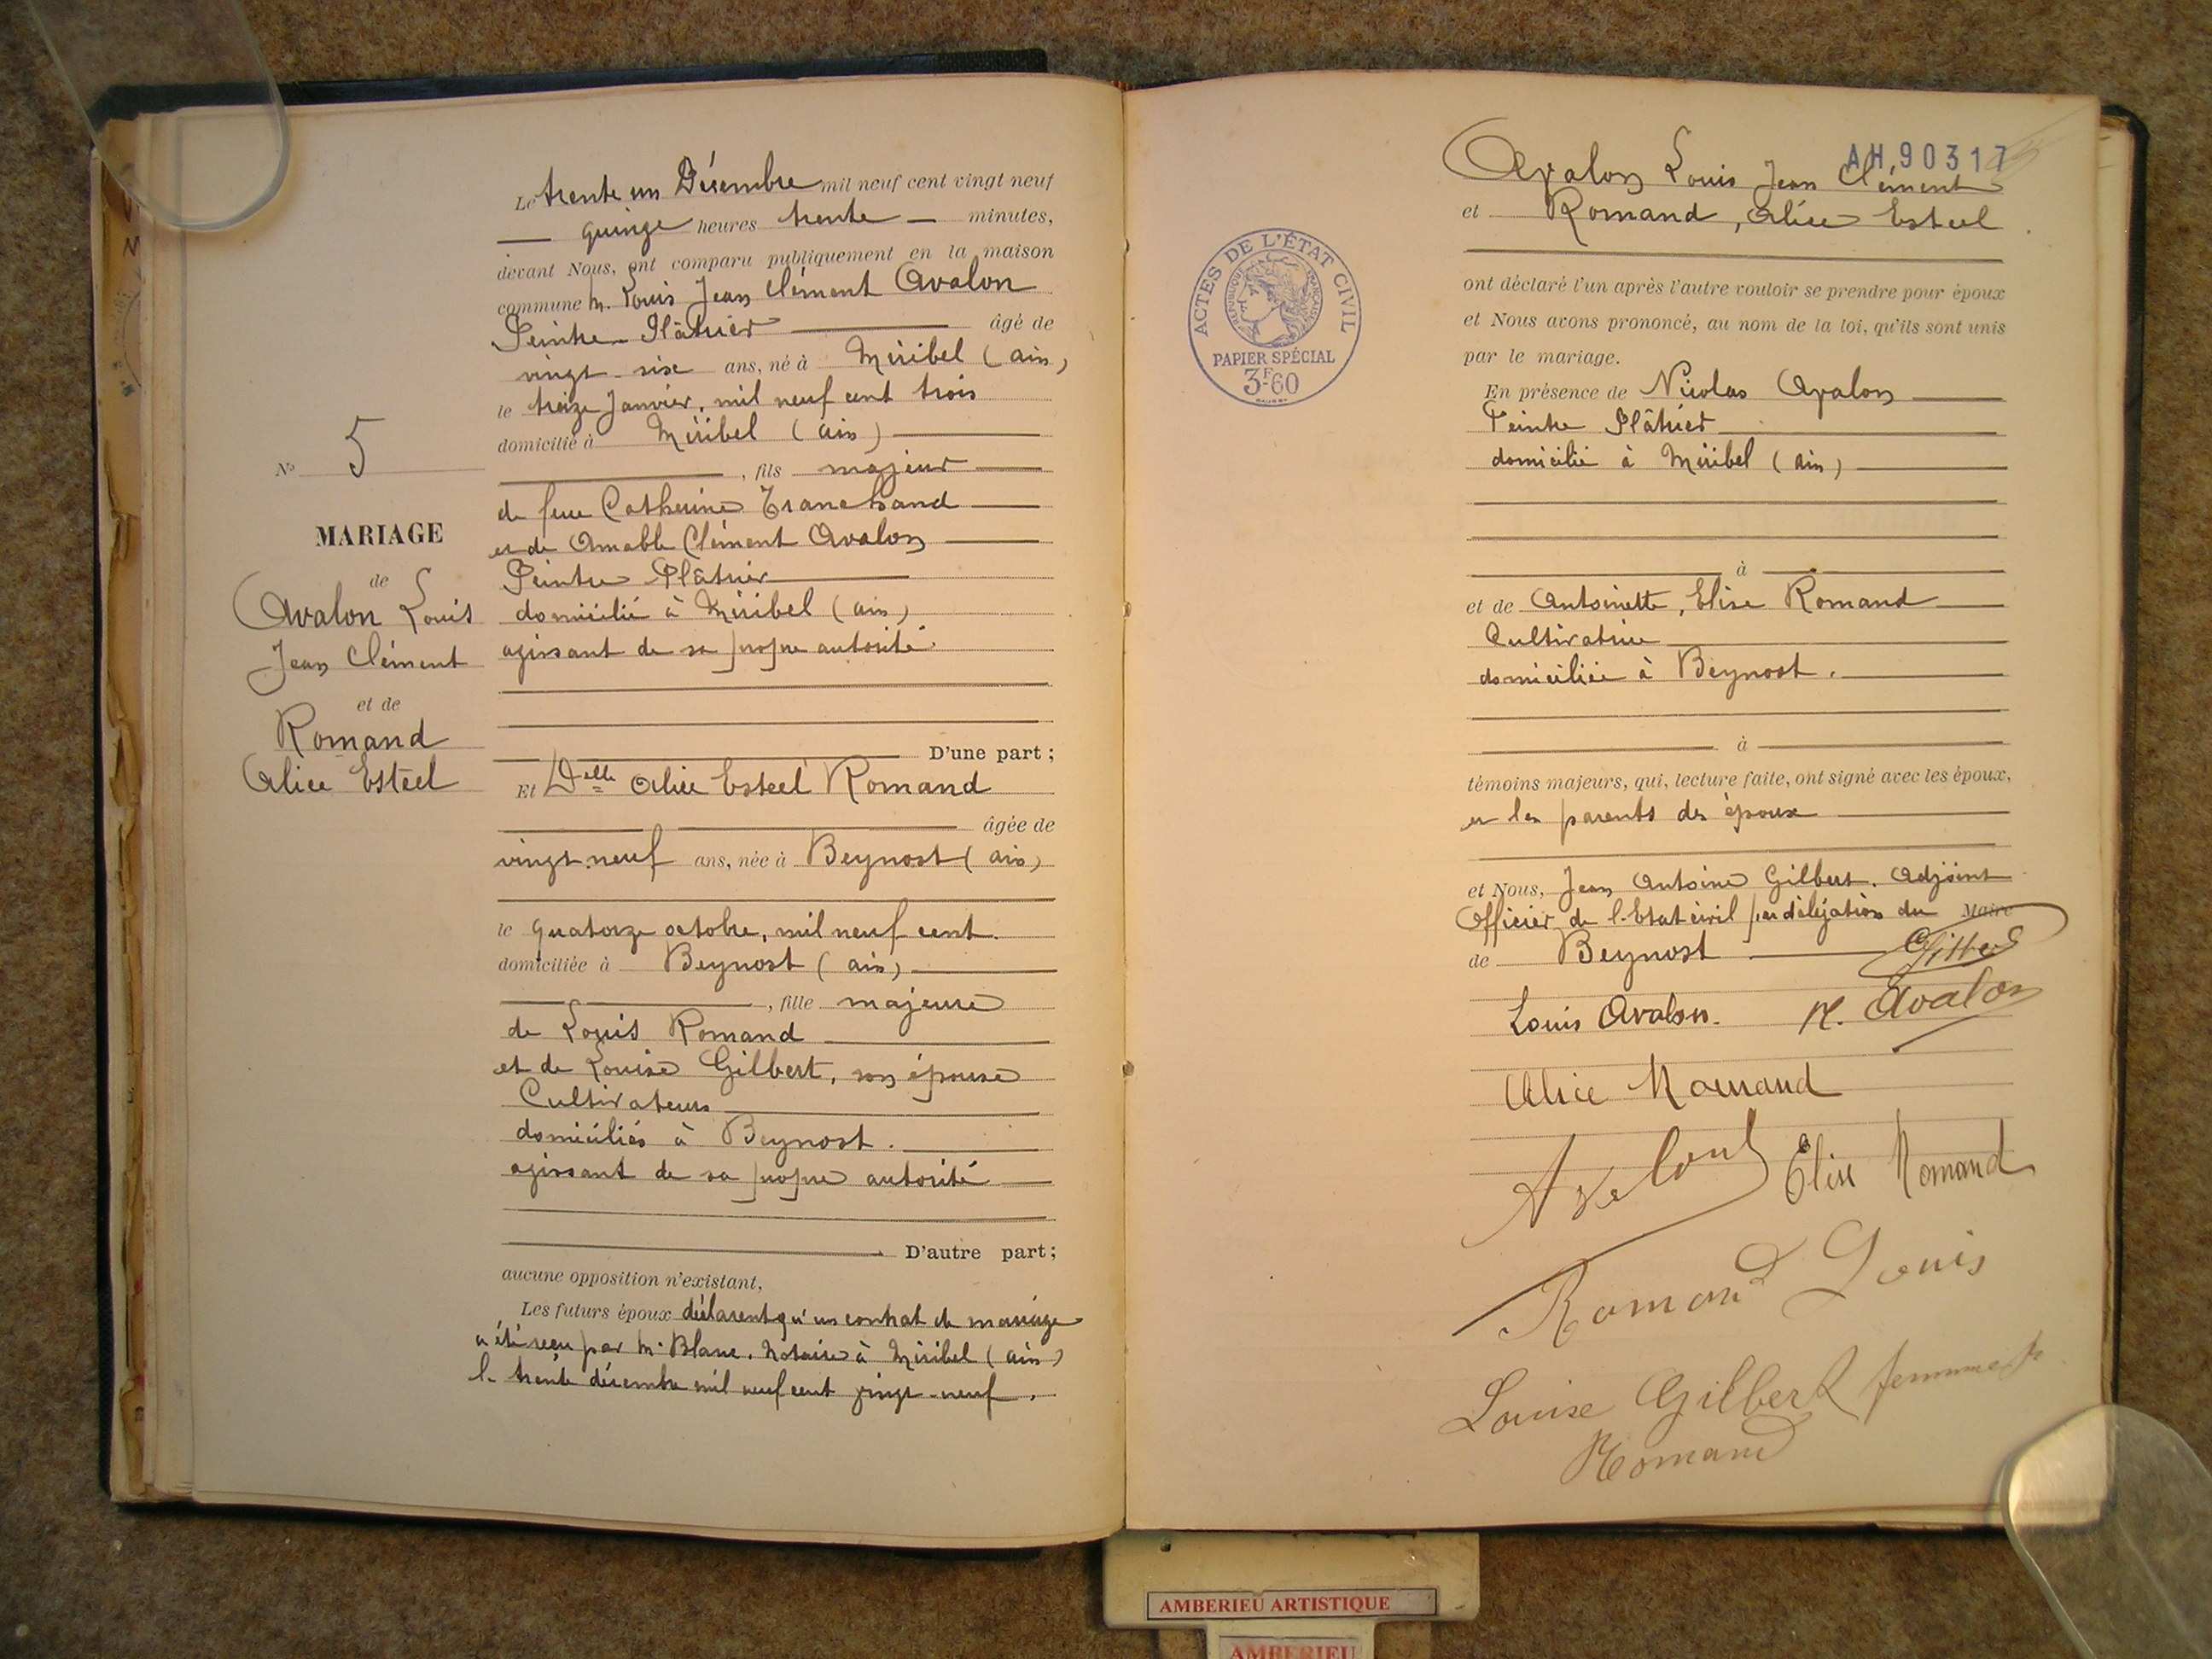 Le trente un Décembre mil neuf cent vingt neuf
quinze heures trente minutes,
devant Nous, ont comparu publiquement en la maison
commune M. Louis Jean Clément Avalon
Peintre Plâtrier âgé de
vingt-six ans, né à Miribel (Ain)
le treize Janvier, mil neuf cent trois
domicilié à Miribel (Ain)
, fils majeur
de feue Catherine Tranchand
et de Amable Clément Avalon
Peintre Plâtrier
domicilié à Miribel (Ain)
agissant de sa propre autorité.
D'une part;
Et Delle Alice Esteel Romand
âgée de
vingt-neuf ans, née à Beynost (Ain)
le quatorze octobre, mil neuf cent.
domiciliée à Beynost (Ain)
, fille majeure
de Louis Romand
et de Louise Gilbert, son épouse
Cultivateurs
domiciliés à Beynost.
agissant de sa propre autorité
D'autre part;
aucune opposition n'existant,
Les futurs époux déclarent qu'un contrat de mariage
a été reçu par M. Blanc. Notaire à Miribel (Ain)
le trente décembre mil neuf cent vingt-neuf.
No 5
MARIAGE
de
Avalon Louis
Jean Clément
et de
Romand
Alice Esteel
AH.90317
Avalon Louis Jean Clément
et Romand, Alice Esteel
ACTES DE L'ÉTAT CIVIL
RÉPUBLIQUE FRANÇAISE
PAPIER SPÉCIAL
3F.60
ont déclaré l'un après l'autre vouloir se prendre pour époux
et Nous avons prononcé, au nom de la loi, qu'ils sont unis
par le mariage.
En présence de Nicolas Avalon
Peintre Plâtrier
domicilié à Miribel (Ain)
à
et de Antoinette, Elise Romand
Cultivatrice
domiciliée à Beynost.
à
témoins majeurs, qui, lecture faite, ont signé avec les époux,
et les parents des époux
et Nous, Jean Antoine Gilbert. Adjoint
Officier de l'Etat civil par délégation du Maire
de Beynost Gilbert
Louis Avalon. N. Avalon
Alice Romand
Avalon Elise Romand
Romand Louis
Louise Gilbert femme
Romand
AMBERIEU ARTISTIQUE
AMBERIEU